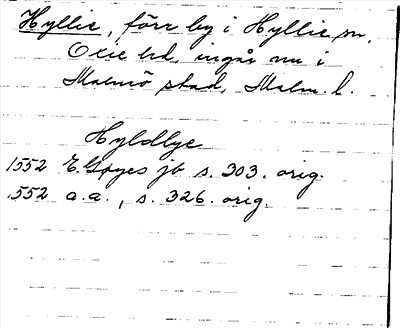 Hyllie, förr by i Hyllie sn,
Oxie hd, ingår nu i
Malmö stad, Malm. l.
Hyldbye
1552 E. Gøyes jb s. 303. orig.
1552 a.a., s. 326. orig.